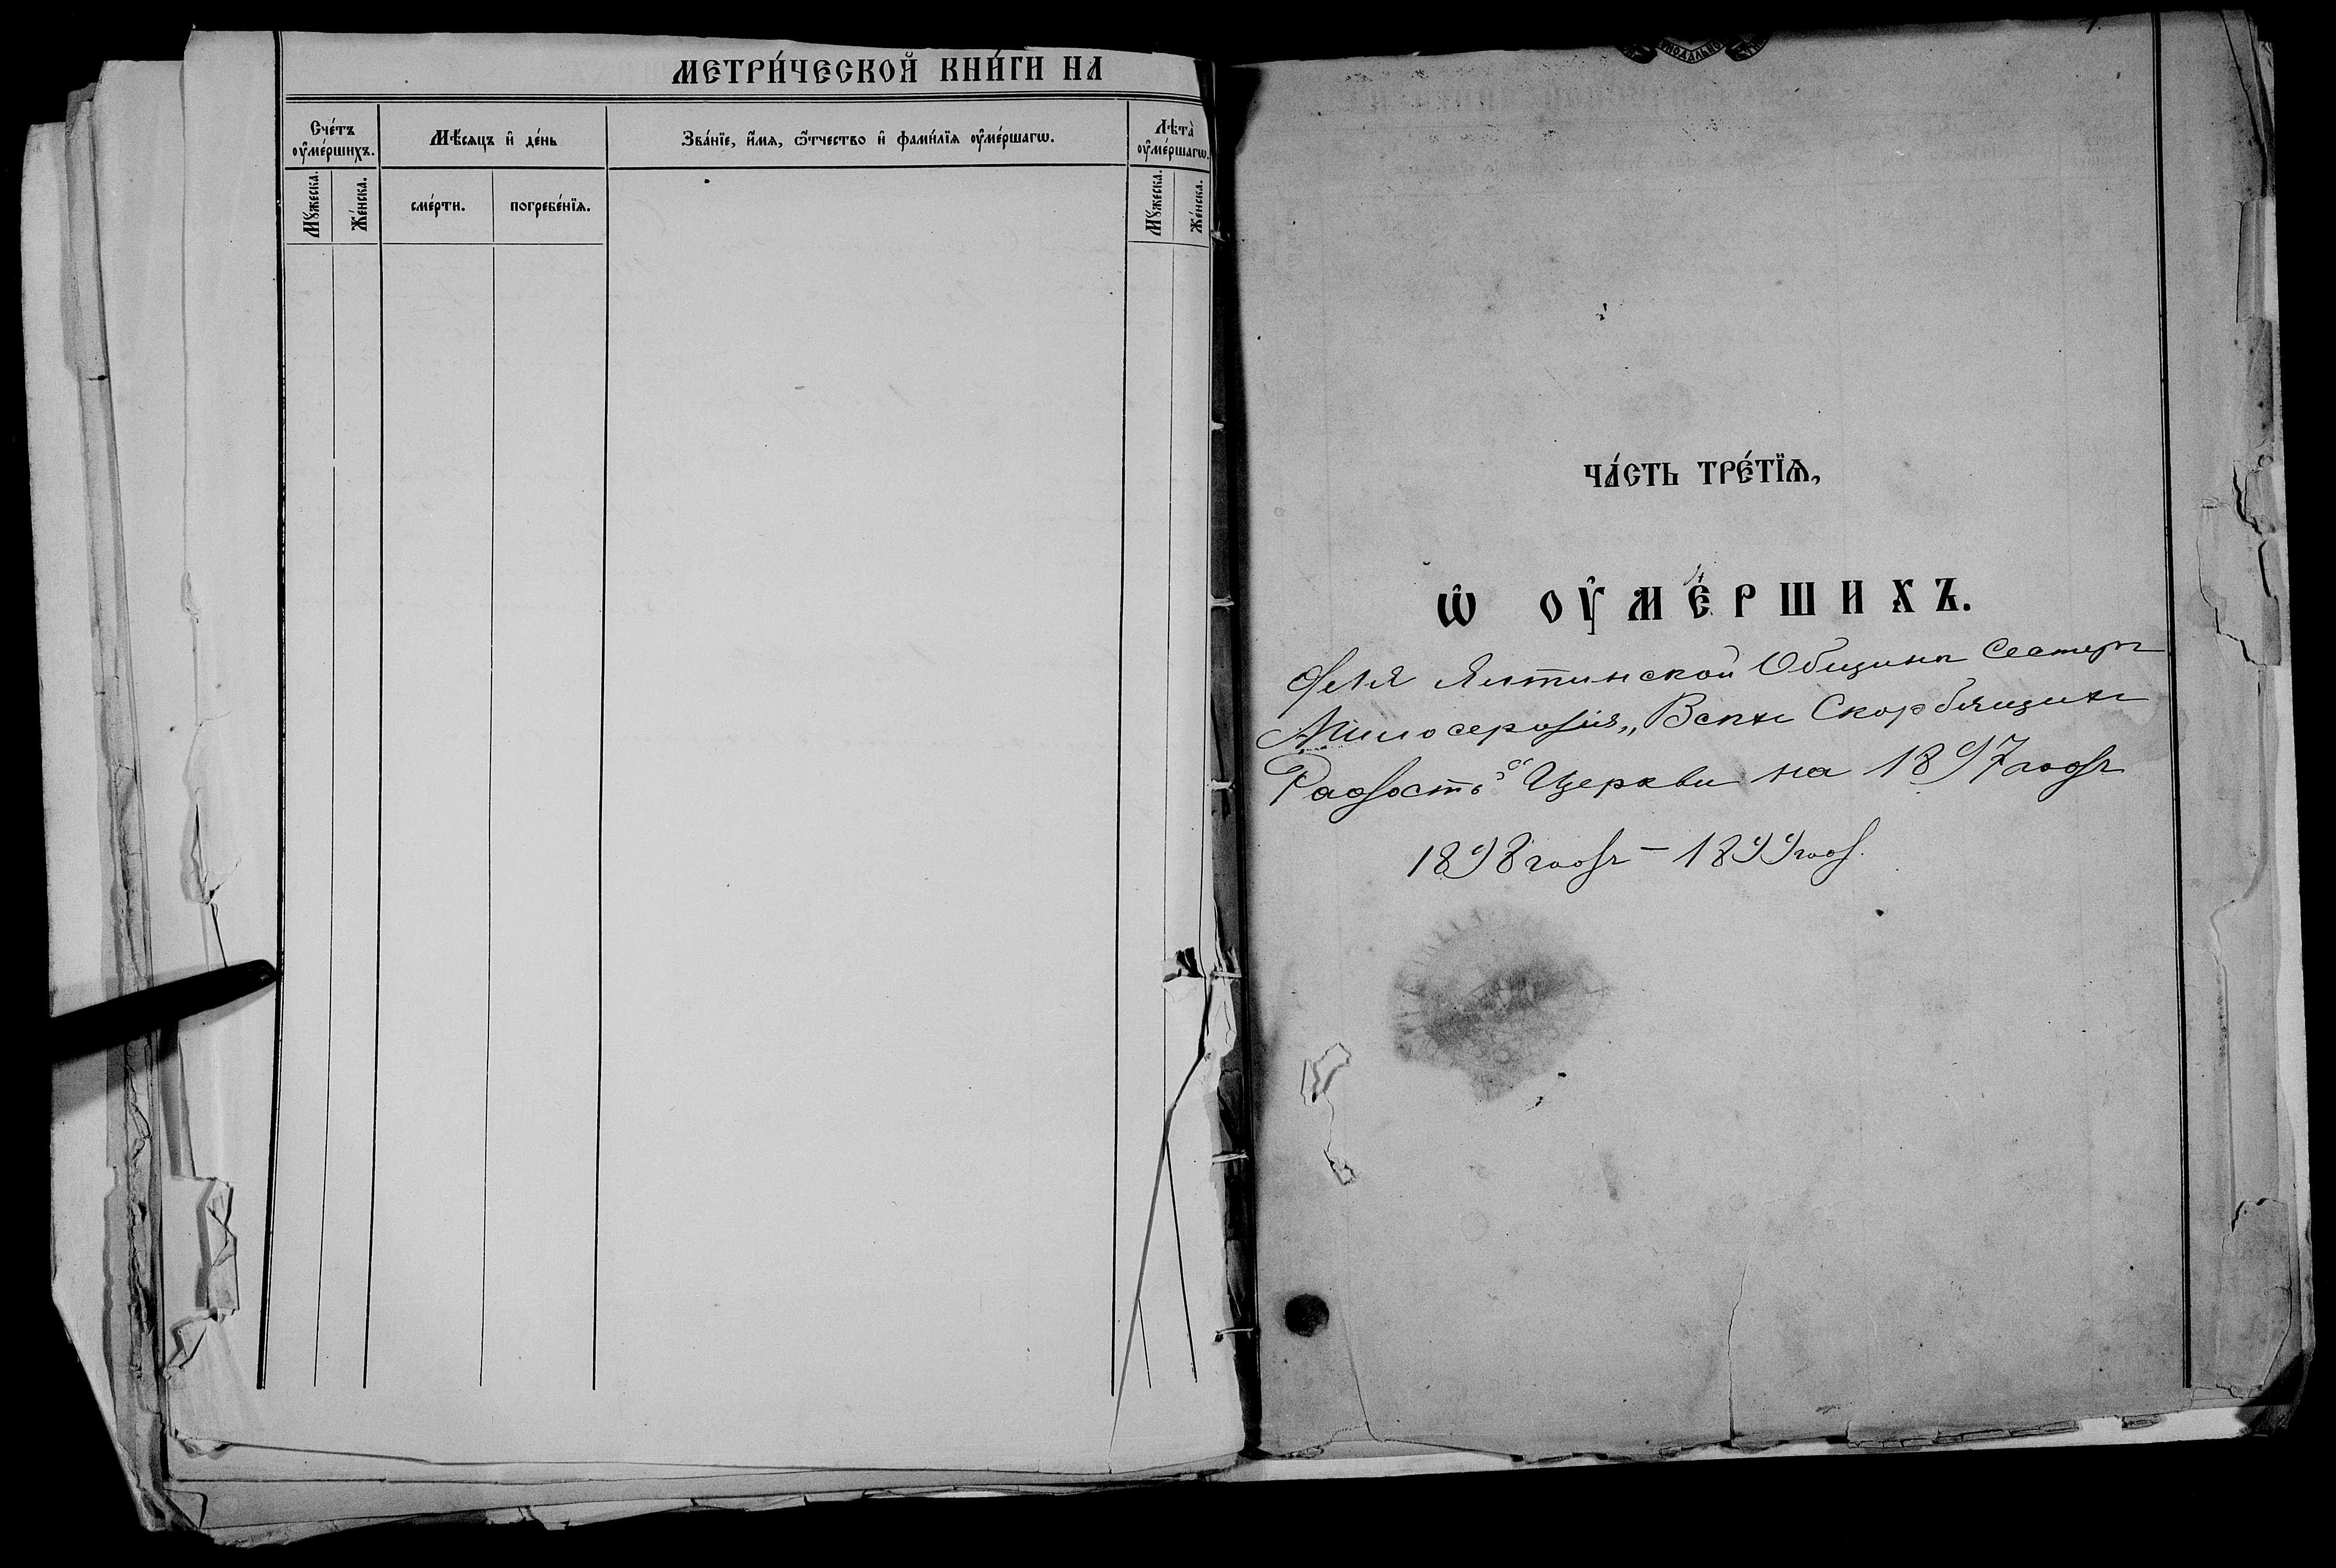 МЕТРИ́ЧЕСКОЙ КНИ́ГИ НА
Сче́тъ ᲂу҆ме́ршихъ.
Мѣ́сяцъ и҆ де́нь
Зва́нїе, и҆́мя, ѻ҆́тчество и҆ фами́лїя ᲂу҆ме́ршагѡ.
Лѣта̀ ᲂу҆ме́ршагѡ.
Мꙋ́жеска.
Же́нска.
сме́рти.
погребе́нїѧ.
Мꙋ́жеска.
Же́нска.
ЧА́СТЬ ТРЕ́ТЇѦ,
Ѡ҆ ОУ҆МЕ́РШИХЪ.
Для Ялтинской Общины Сестеръ
Милосердія „Всѣхъ Скорбящихъ
Радость“ Церкви на 1897 годъ
1898 годъ – 1899 год.